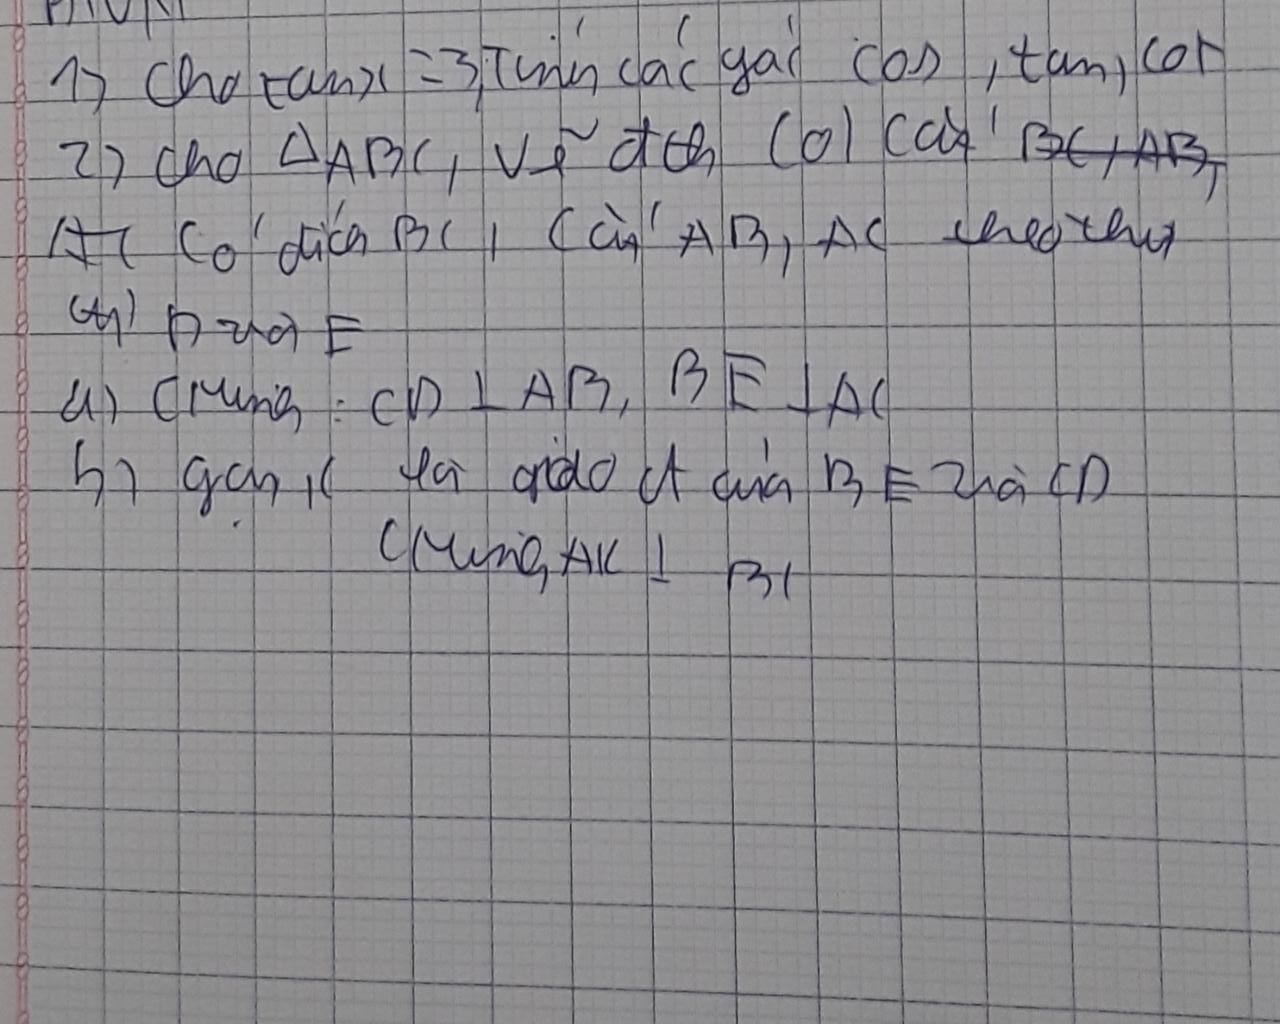 1) Cho tanx = 3, Tính các giá cos, tan, cot
2) Cho △ABC, vẽ đtròn (O) cắt BC, AB,
AC có đkính BC, cắt AB, AC theo thứ
tự D và E
a) CMung: CD ⊥ AB, BE ⊥ AC
b) gọi K là giao của BE và CD
CMung AK ⊥ BC